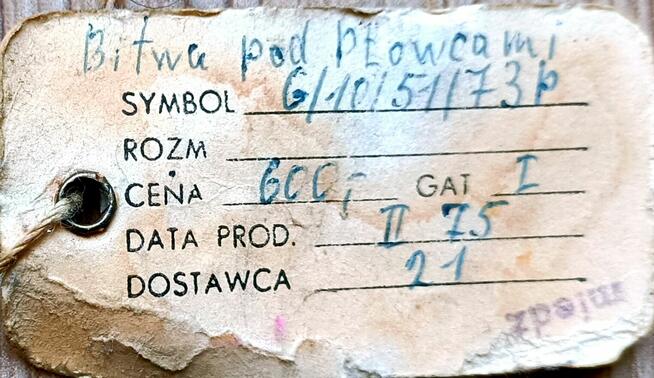 Bitwa pod Płowcami
SYMBOL G/10/51/73p
ROZM
CENA 600,- GAT I
DATA PROD. II 75
DOSTAWCA 21